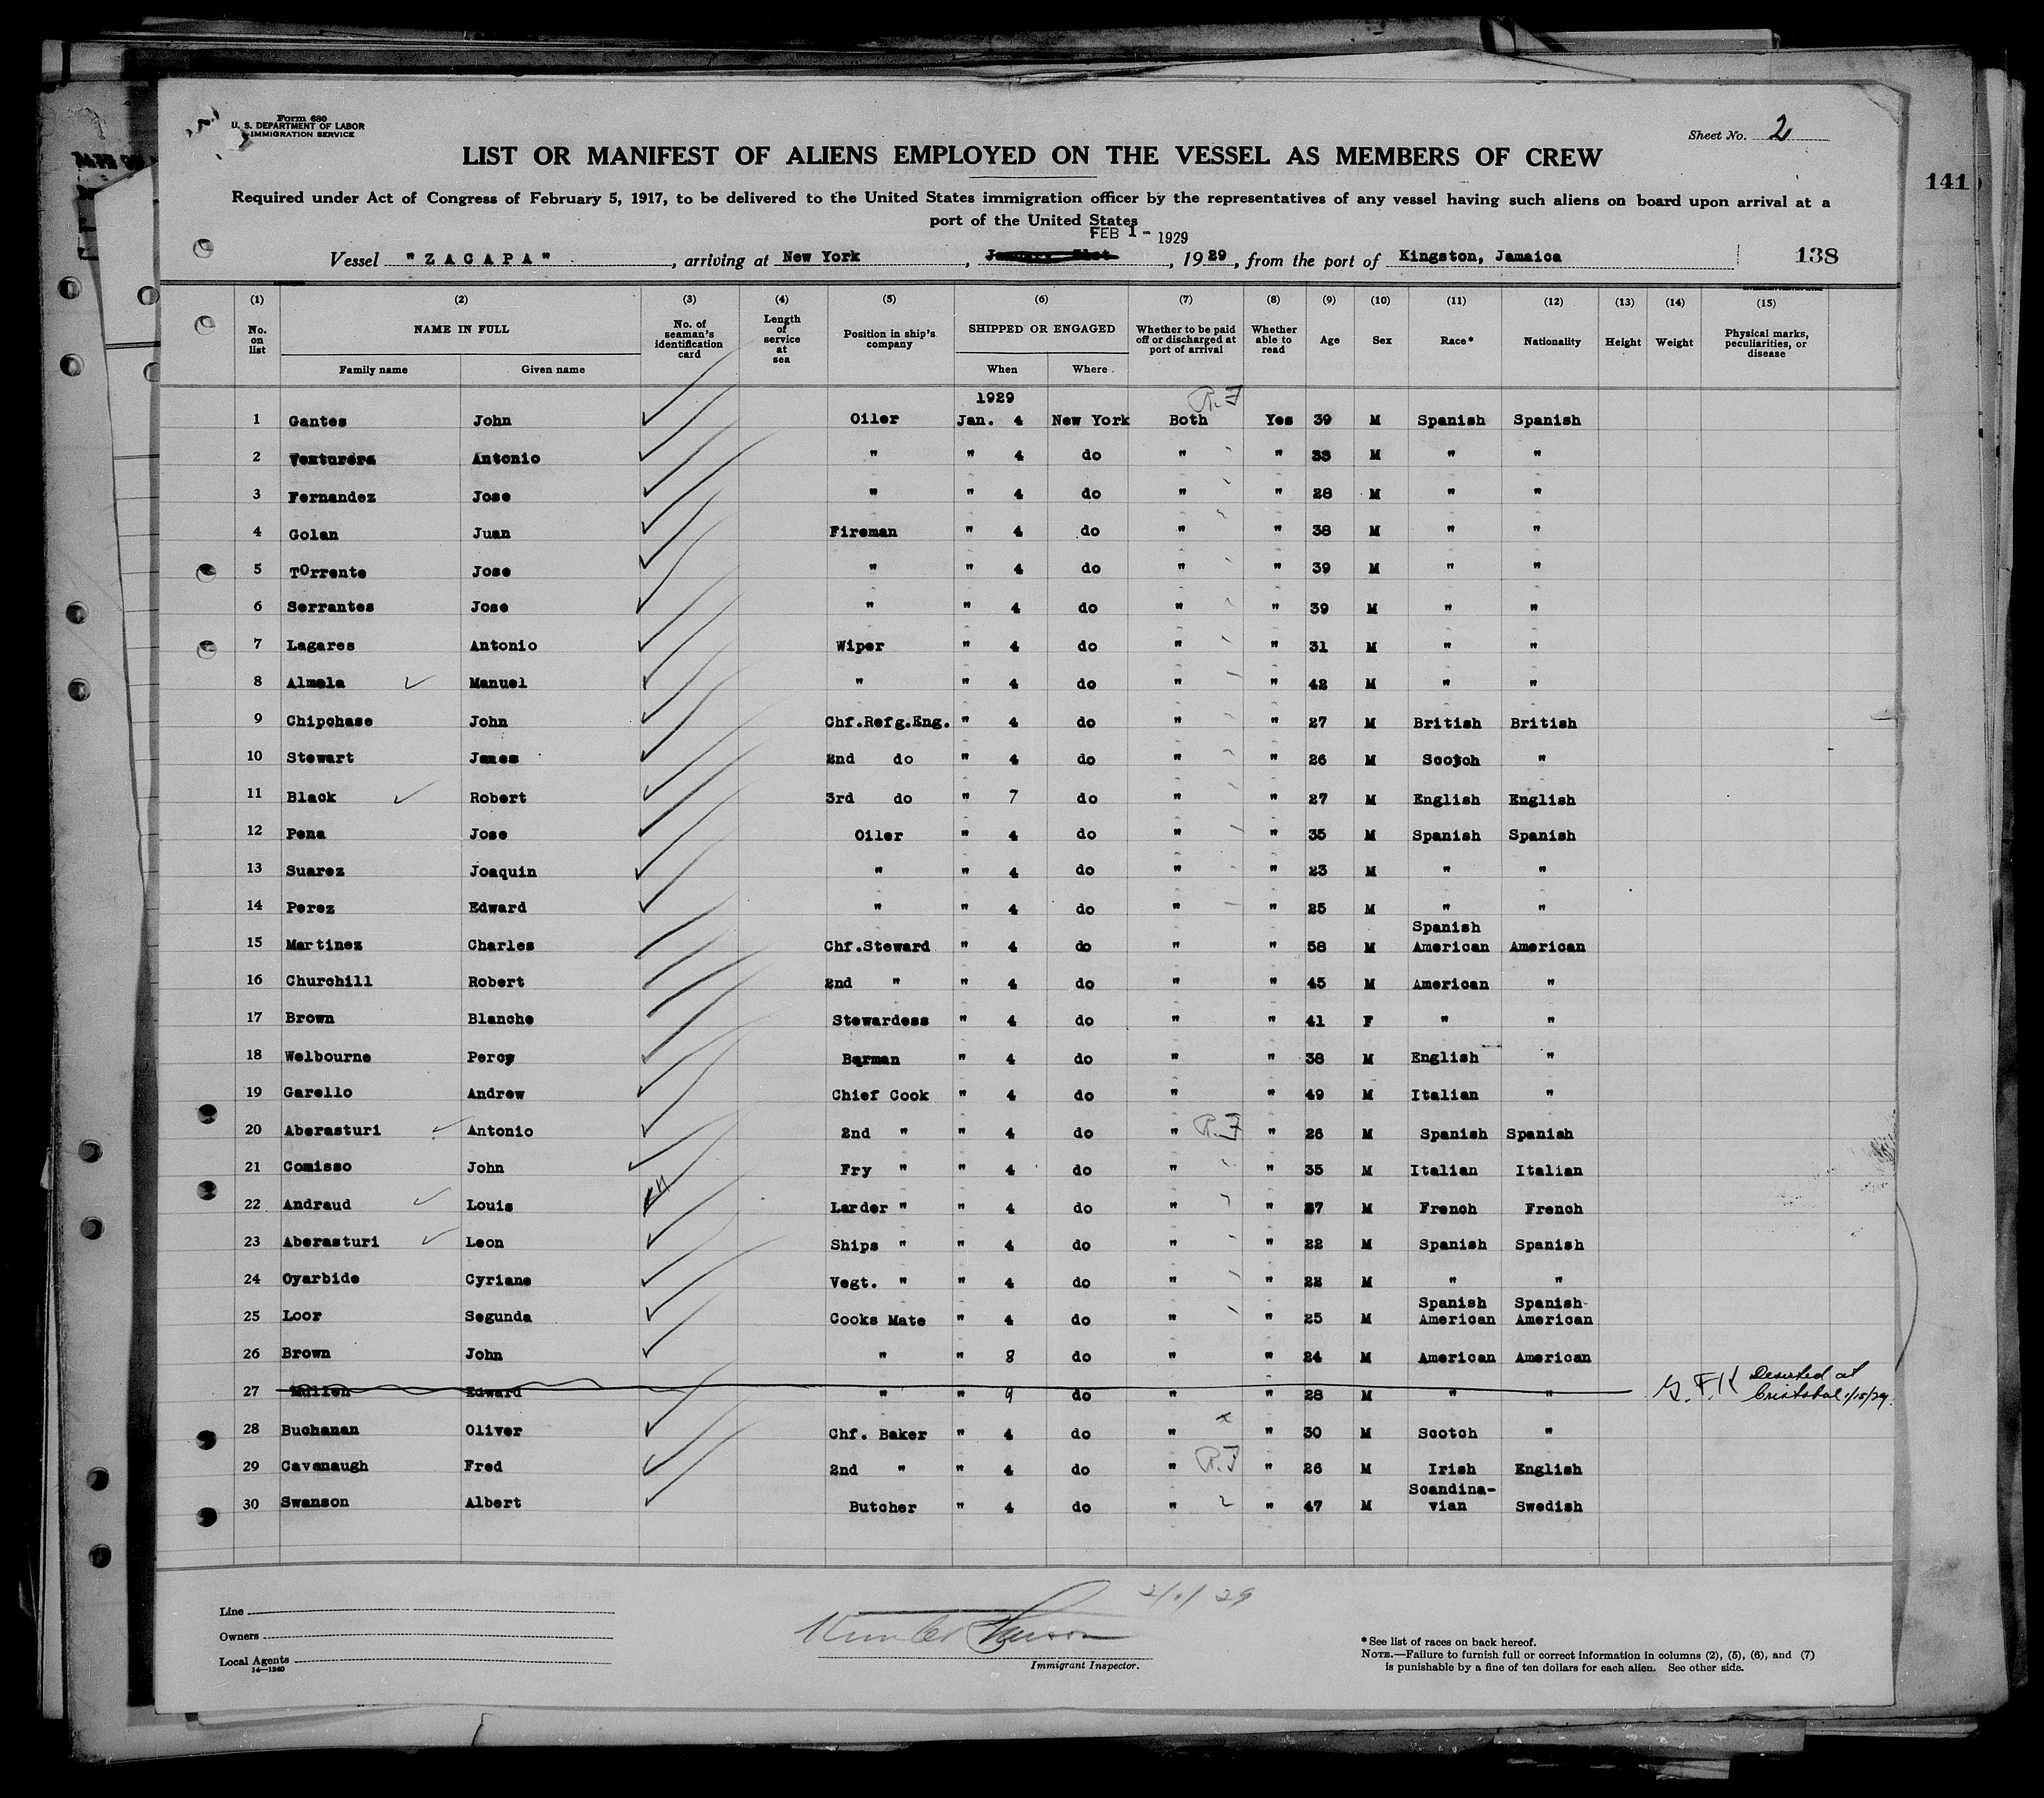 Form 680
U. S. DEPARTMENT OF LABOR
IMMIGRATION SERVICE
Sheet No. 2
LIST OR MANIFEST OF ALIENS EMPLOYED ON THE VESSEL AS MEMBERS OF CREW
141
Required under Act of Congress of February 5, 1917, to be delivered to the United States immigration officer by the representatives of any vessel having such aliens on board upon arrival at a
port of the United States
FEB 1 - 1929
Vessel "ZACAPA", arriving at New York, January 31st, 1929, from the port of Kingston, Jamaica
138
(1) (2) (3) (4) (5) (6) (7) (8) (9) (10) (11) (12) (13) (14) (15)
No. on list NAME IN FULL No. of seaman's identification card Length of service at sea Position in ship's company SHIPPED OR ENGAGED Whether to be paid off or discharged at port of arrival Whether able to read Age Sex Race* Nationality Height Weight Physical marks, peculiarities, or disease
Family name Given name When Where
1929 R.F
1 Gantes John Oiler Jan. 4 New York Both Yes 39 M Spanish Spanish
2 Antonio " " 4 do " " 33 M " "
3 Fernandez Jose " " 4 do " " 28 M " "
4 Golan Juan Fireman " 4 do " " 38 M " "
5 TOrrente Jose " " 4 do " " 39 M " "
6 Serrantes Jose " " 4 do " " 39 M " "
7 Lagares Antonio Wiper " 4 do " " 31 M " "
8 Almela Manuel " " 4 do " " 42 M " "
9 Chipchase John Chf.Refg.Eng. " 4 do " " 27 M British British
10 Stewart James 2nd do " 4 do " " 26 M Scotch "
11 Black Robert 3rd do " 7 do " " 27 M English English
12 Pena Jose Oiler " 4 do " " 35 M Spanish Spanish
13 Suarez Joaquin " " 4 do " " 23 M " "
14 Perez Edward " " 4 do " " 25 M " "
15 Martinez Charles Chf.Steward " 4 do " " 58 M Spanish American American
16 Churchill Robert 2nd " " 4 do " " 45 M American "
17 Brown Blanche Stewardess " 4 do " " 41 F " "
18 Welbourne Percy Barman " 4 do " " 38 M English "
19 Garello Andrew Chief Cook " 4 do " " 49 M Italian "
20 Aberasturi Antonio 2nd " " 4 do " R.F " 26 M Spanish Spanish
21 Comisso John Fry " " 4 do " " 35 M Italian Italian
22 Andraud Louis Larder " " 4 do " " 27 M French French
23 Aberasturi Leon Ships " " 4 do " " 22 M Spanish Spanish
24 Oyarbide Cyriane Vegt. " " 4 do " " 22 M " "
25 Loor Segunda Cooks Mate " 4 do " " 25 M Spanish American Spanish-American
26 Brown John " " 8 do " " 24 M American American
27 Mullen Edward " " 9 do " " 28 M " " G.F.K Deserted at Cristobal 1/15/29.
28 Buchanan Oliver Chf. Baker " 4 do " x " 30 M Scotch "
29 Cavanaugh Fred 2nd " " 4 do " R.F " 26 M Irish English
30 Swanson Albert Butcher " 4 do " " 47 M Scandina-vian Swedish
2/1/29
Line
Owners
Local Agents
14—1240
Immigrant Inspector.
*See list of races on back hereof.
NOTE.—Failure to furnish full or correct information in columns (2), (5), (6), and (7)
is punishable by a fine of ten dollars for each alien. See other side.